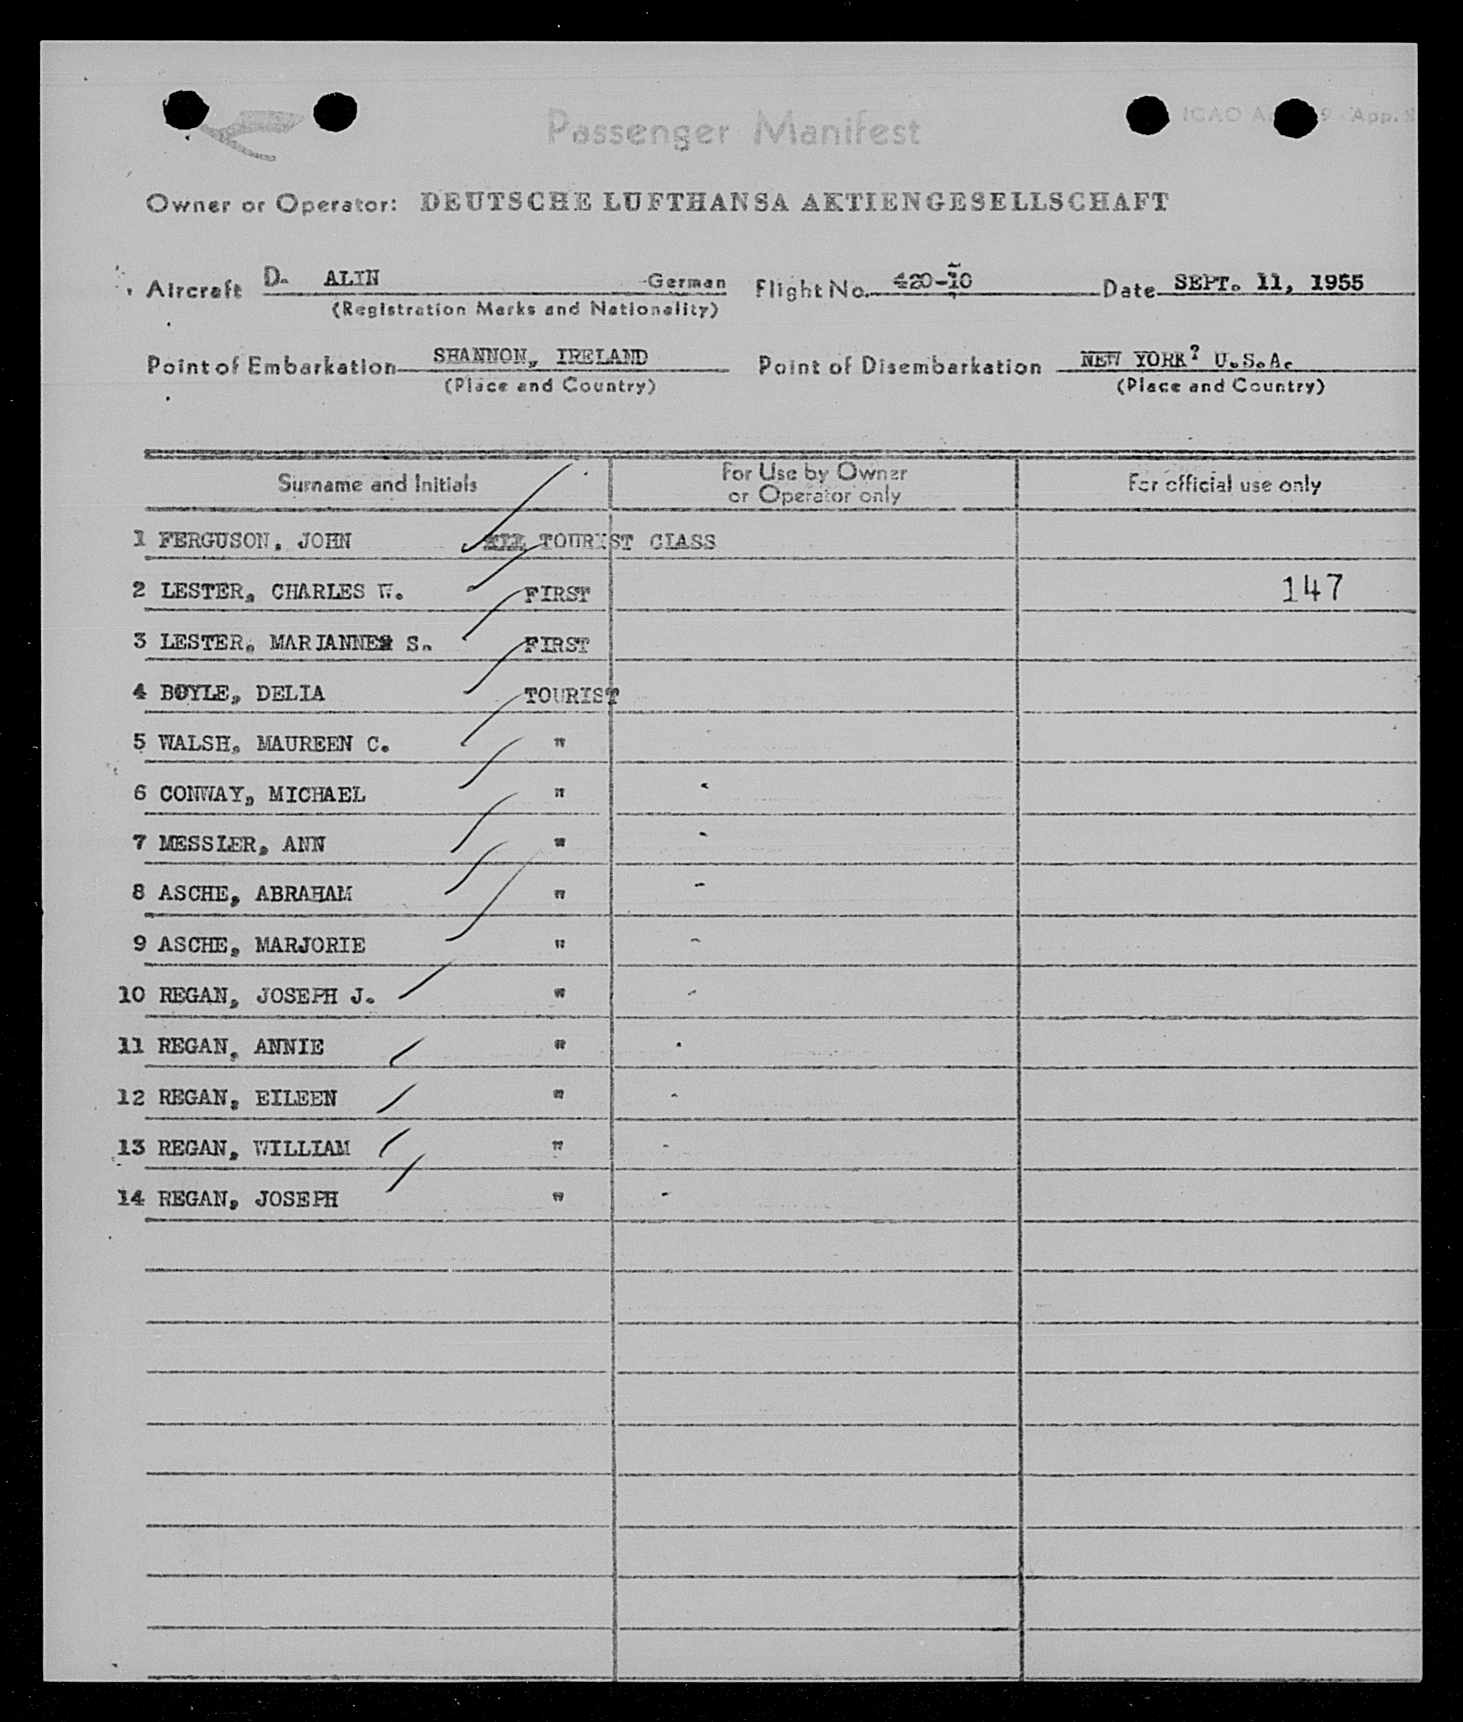 Passenger Manifest
Owner or Operator: DEUTSCHE LUFTHANSA AKTIENGESELLSCHAFT
Aircraft D- ALIN -German Flight No. 420-10 Date SEPT. 11, 1955
(Registration Marks and Nationality)
Point of Embarkation SHANNON, IRELAND Point of Disembarkation NEW YORK? U.S.A.
(Place and Country) (Place and Country)
Surname and Initials For Use by Owner or Operator only For official use only
1 FERGUSON, JOHN TOURIST CLASS
2 LESTER, CHARLES W. FIRST 147
3 LESTER, MARIANNE S. FIRST
4 BOYLE, DELIA TOURIST
5 WALSH, MAUREEN C. "
6 CONWAY, MICHAEL "
7 MESSLER, ANN "
8 ASCHE, ABRAHAM "
9 ASCHE, MARJORIE "
10 REGAN, JOSEPH J. "
11 REGAN, ANNIE "
12 REGAN, EILEEN "
13 REGAN, WILLIAM "
14 REGAN, JOSEPH "